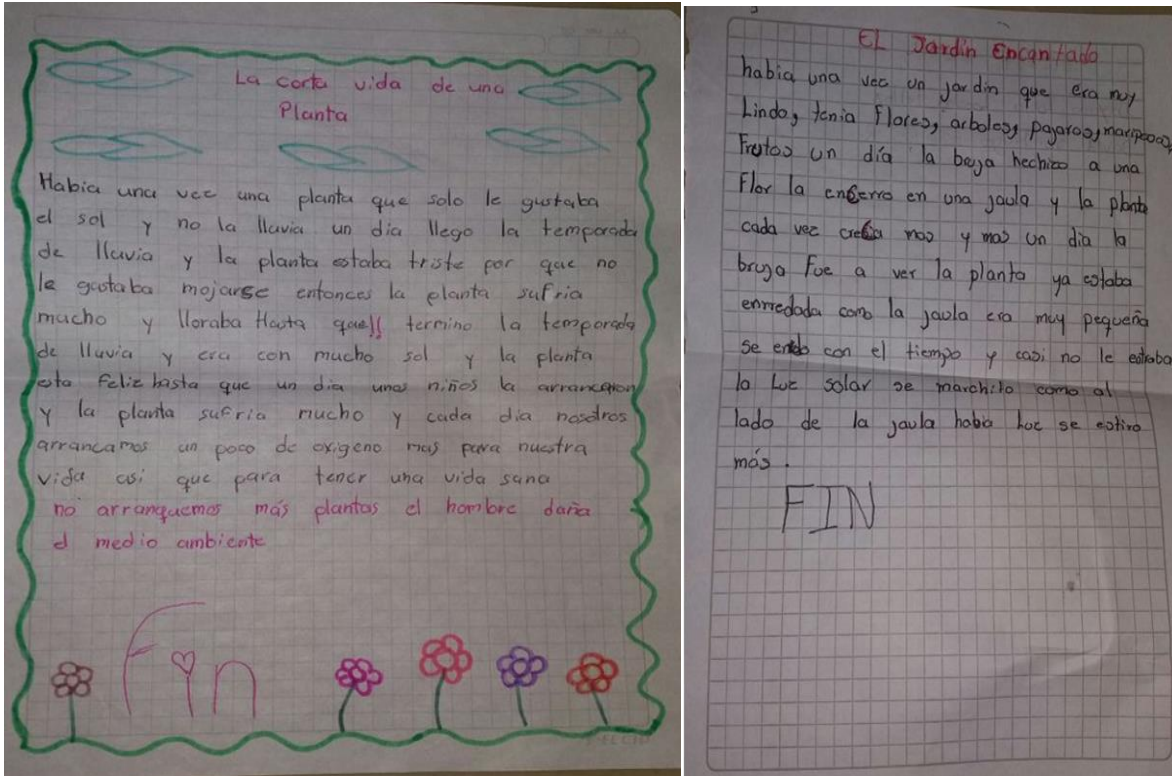 La corta vida de una
Planta
Habia una vec una planta que solo le gustaba
el sol y no la lluvia un dia llego la temporada
de lluvia y la planta estaba triste por que no
le gustaba mojarse entonces la planta sufria
mucho y lloraba Hasta que termino la temporada
de lluvia y era con mucho sol y la planta
esta feliz hasta que un dia unos niños la arrancaron
y la planta sufria mucho y cada dia nosotros
arrancamos un poco de oxigeno mas para nuestra
vida asi que para tener una vida sana
no arranquemos más plantas el hombre daña
el medio ambiente
Fin
EL Jardin Encantado
habia una vec un jardin que era muy
Lindo, tenia Flores, arboles, pajaros, mariposas,
Frutos un día la beuja hechizo a una
Flor la encerro en una jaula y la planta
cada vec crecia mas y mas un dia la
bruja Fue a ver la planta ya estaba
enrredada como la jaula era muy pequeña
se con el tiempo y casi no le entraba
la Luc solar se marchito como al
lado de la jaula habia luc se estiro
más.
FIN